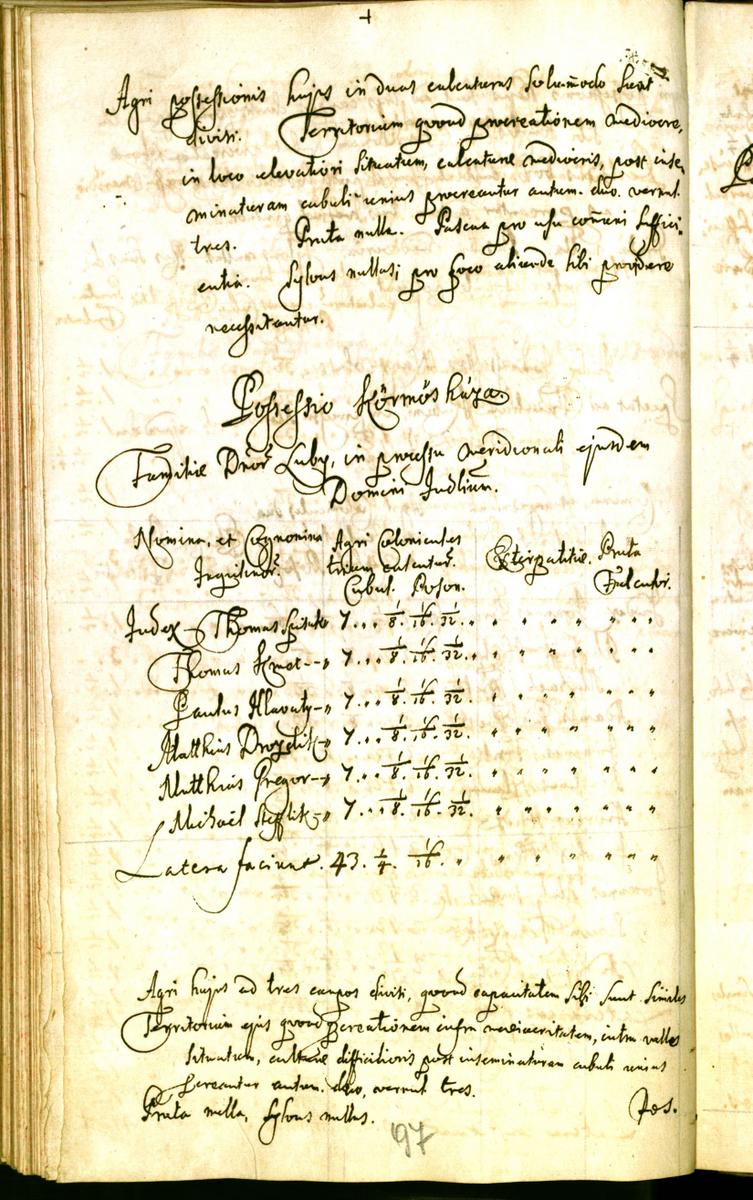 Agri possessionis hujus in duas calcaturas solum̄odo sunt
divisi. Territorium quoad procreationem mediocre,
in loco elevatiori situatum, culturae mediocris, post inse,
minaturam cubuli unius procreantur autum. duo. vernal.
tres. Prata nulla. Pascua pro usu com̄uni suffici,
entia. Sylvas nullas; pro foco aliunde sibi providere
necessitantur.
Possessio Körmös háza
Familiae Dnor. Luby, in processu meridionali ejusdem
Domini Judlium.
Nomina, et Cognomina Agri Colonicales Extirpatitiae. Prata
Inquilinor. trium calcatur. Falcator.
Cubul. Poson.
Judex Thomas 7 . . . 1/8 . 1/16 . 1/32 . " " " " " "
Thomas Kmet 7 . . . 1/8 . 1/16 . 1/32 . " " " " " "
Paulus Hlavaty 7 . . . 1/8 . 1/16 . 1/32 . " " " " " "
Matthias 7 . . . 1/8 . 1/16 . 1/32 . " " " " " "
Matthias Gregor 7 . . . 1/8 . 1/16 . 1/32 . " " " " " "
Michaël 7 . . . 1/8 . 1/16 . 1/32 . " " " " " "
Latera faciunt. 43. 1/4 . 1/16 . " " " " " " "
Agri hujus ad tres campos divisi, quoad capacitatem sibi sunt similes
Territorium ejus quoad procreationem infra mediocritatem, inter valles
situatum, culturae difficilioris post inseminaturam cubuli unius
procreantur autum. duo, vernal tres.
Prata nulla, sylvas nullas. Pos.
97